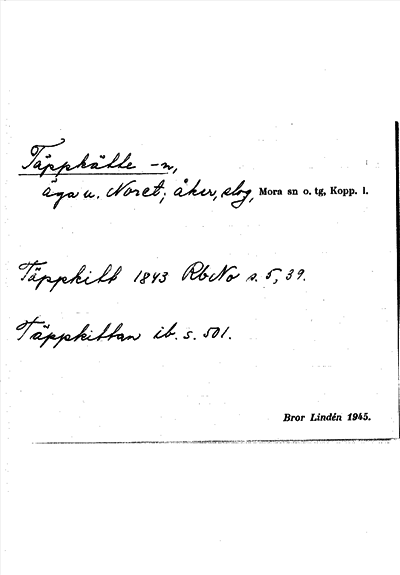 Täppkätte -n,
äga u. Noret; åker, slog, Mora sn o. tg, Kopp. l.
Täppkitt 1843 RbNo s. 5, 39.
Täppkittan ib. s. 501.
Bror Lindén 1945.